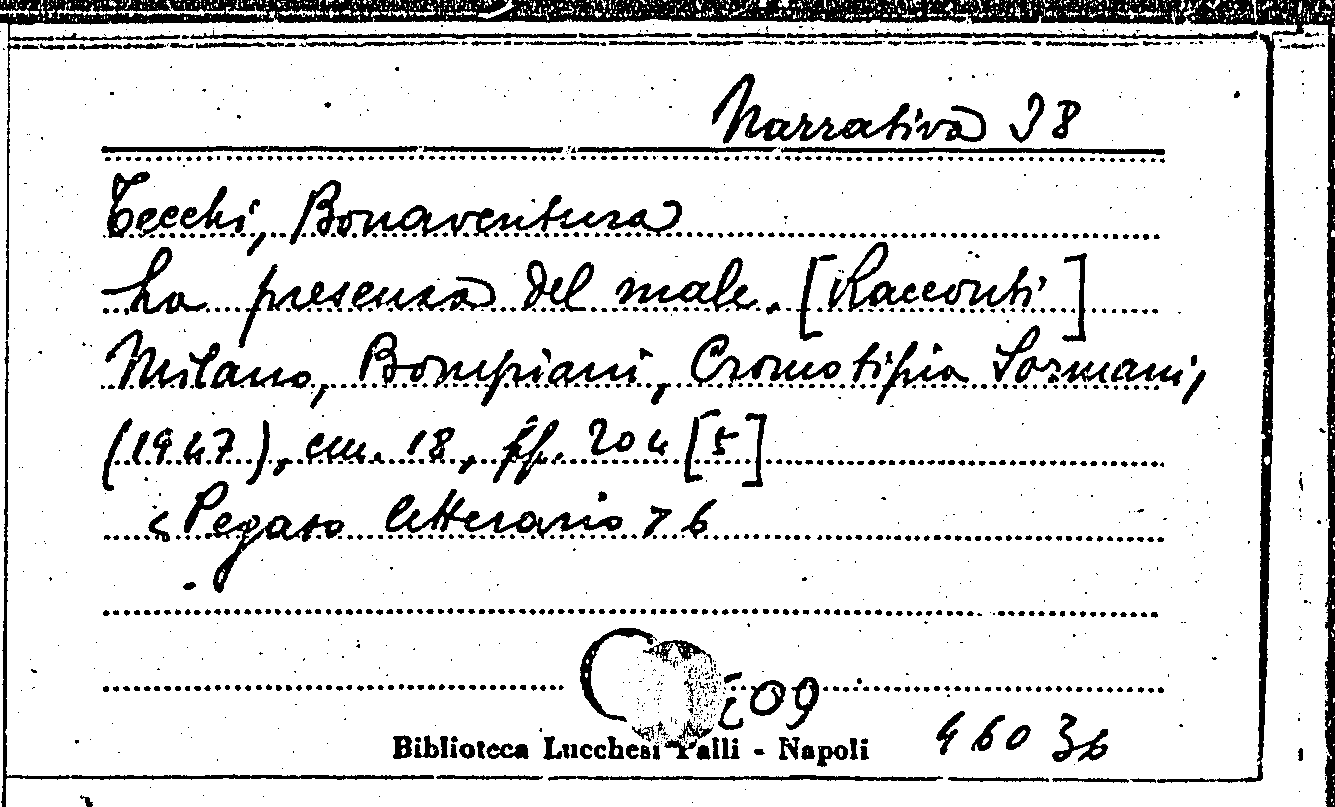 Narrativa 38
Tecchi, Bonaventura
La presenza del male. [Racconti]
Milano, Bompiani, Cromotipia Sormani,
(1947), cm. 18, pp. 204 [5]
<Pegaso letterario> 6
Biblioteca Lucchesi Palli - Napoli
46036